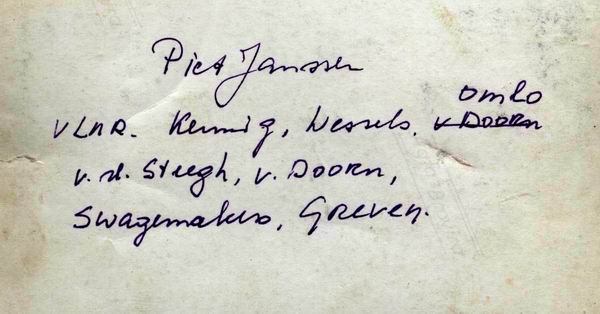 Piet Janssen
vlnr. Kennig, Wessels, Omlo v Doorn
v. d. Steegh, v. Doorn,
Swagemakers, Greven.